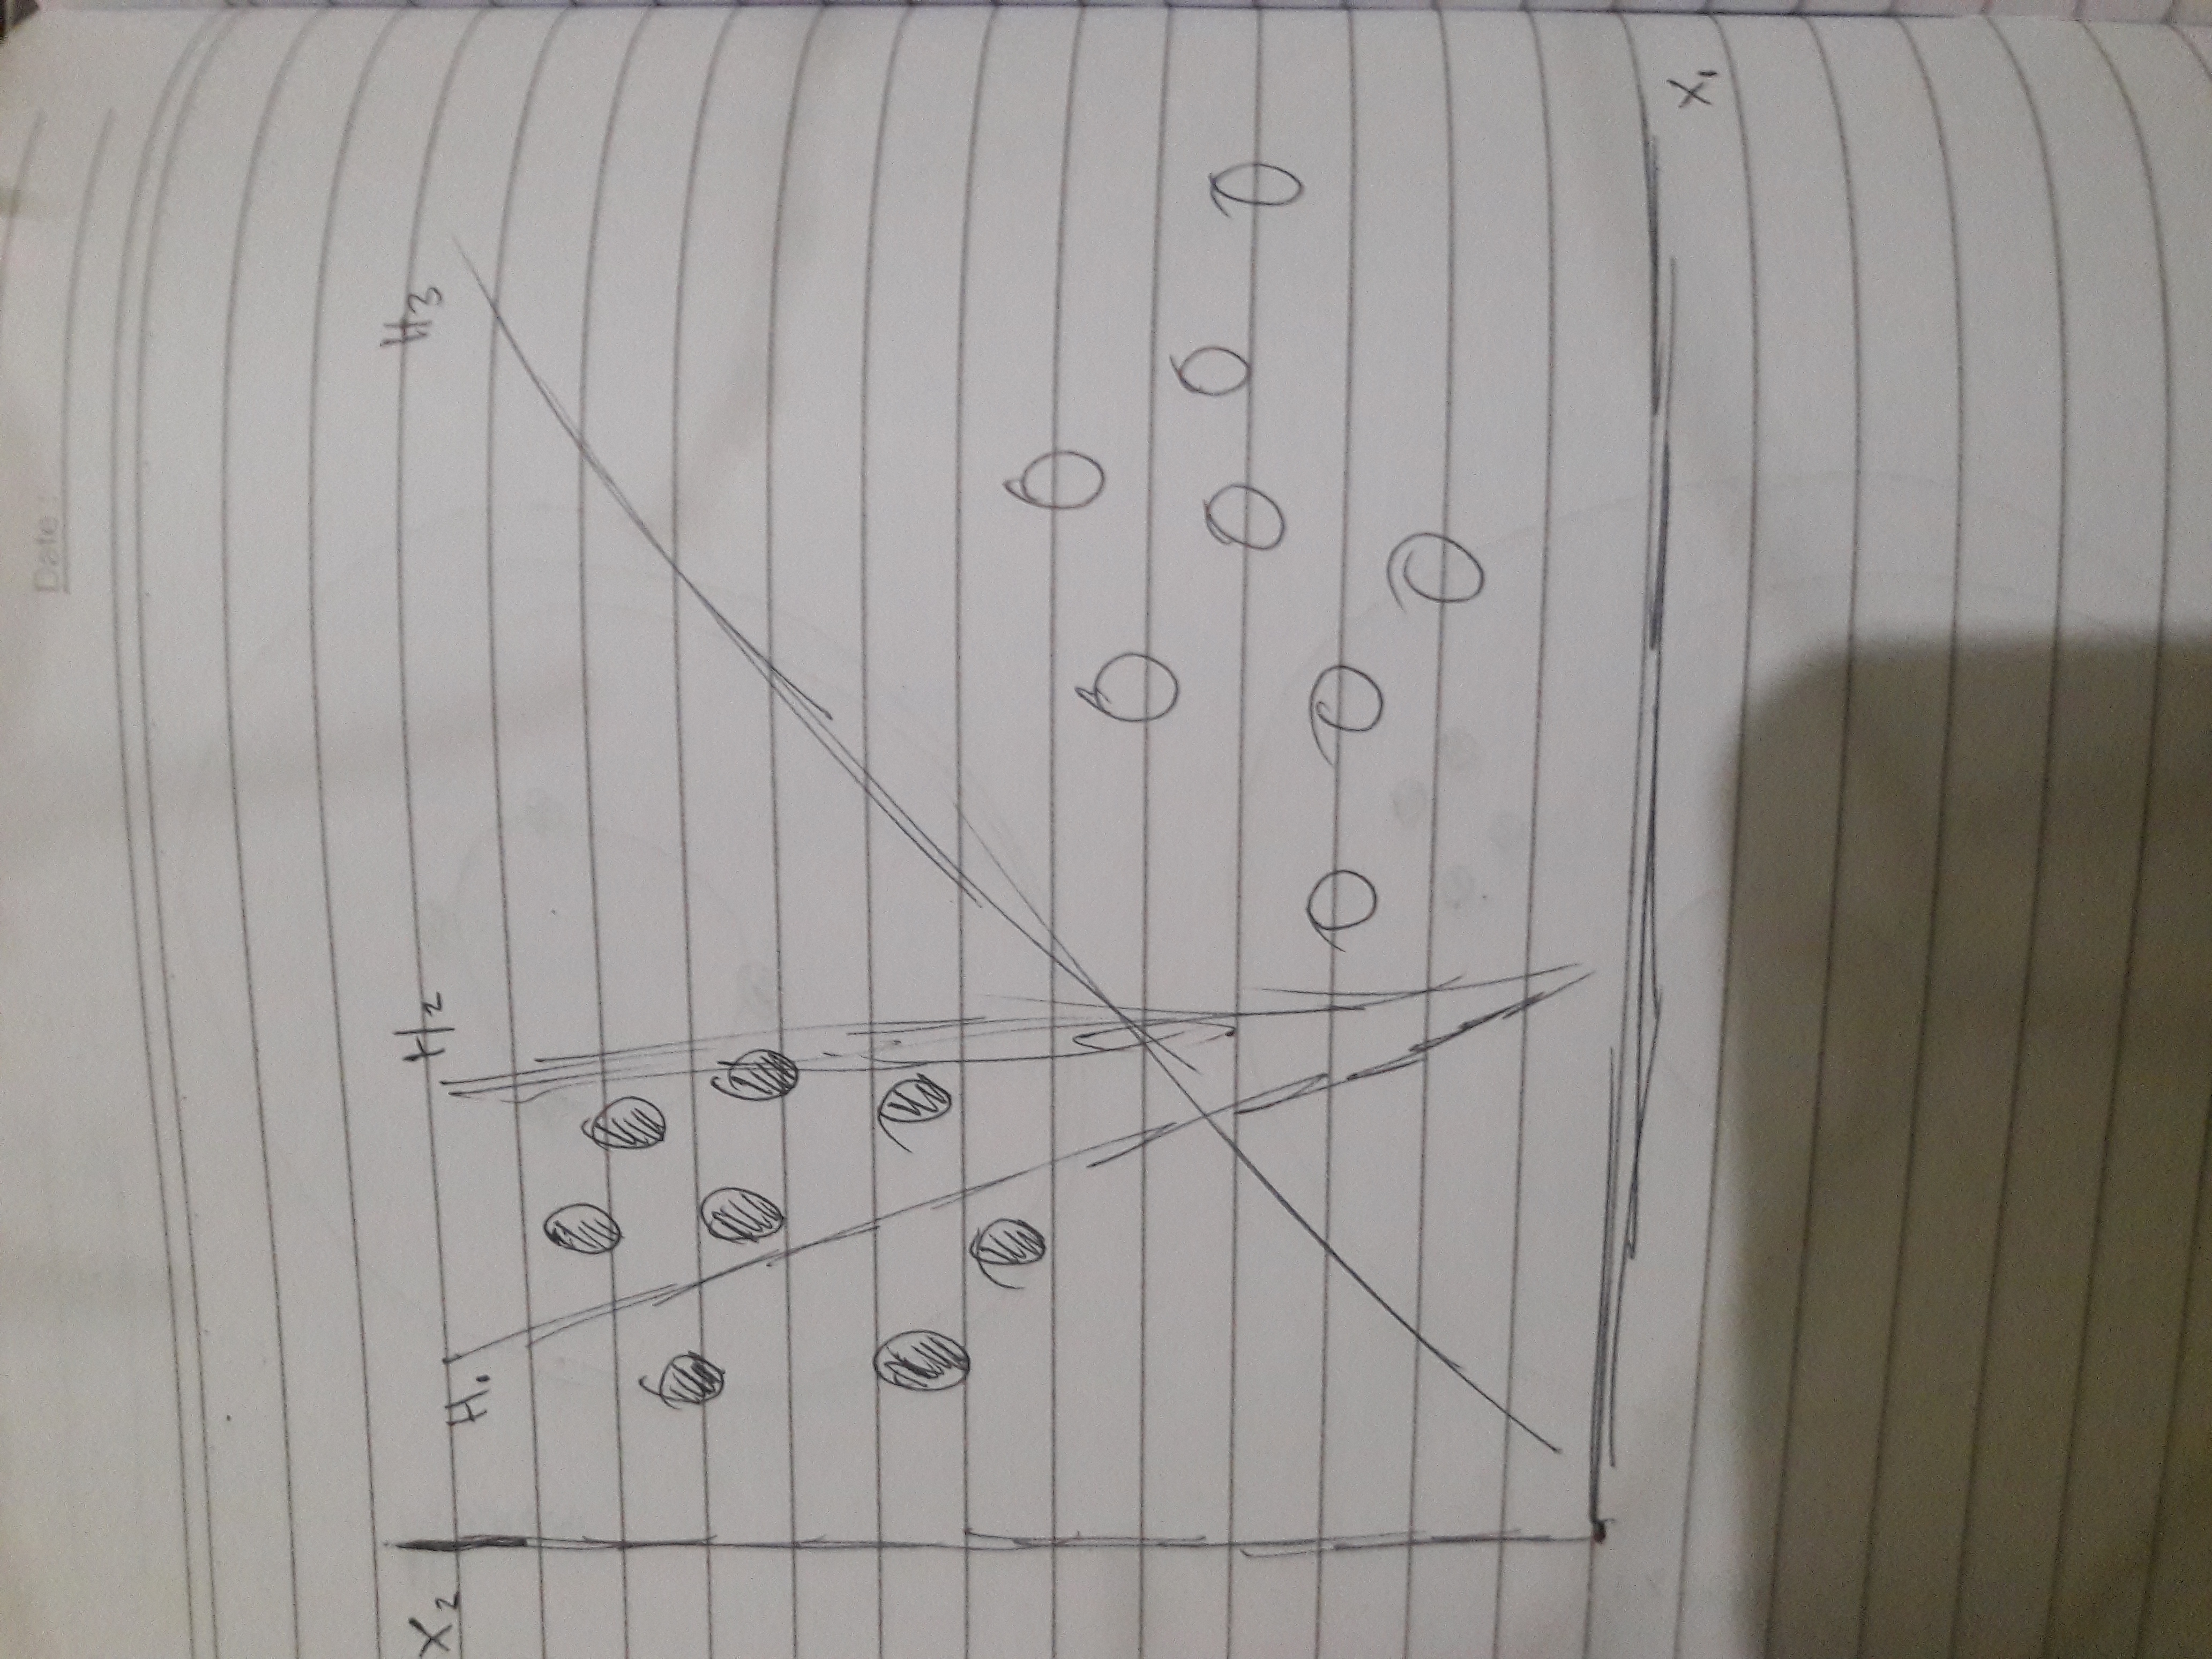 Date :
X2
H1
H2
H3
X1